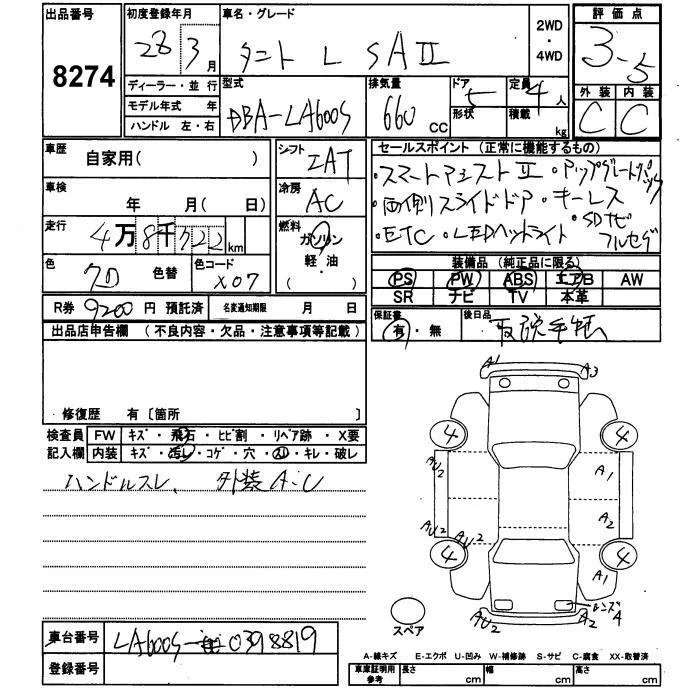 出品番号 初度登録年月 車名・グレード 2WD 評価点
8274 28 3月 タント L SAⅡ ・ 3-5
4WD
ディーラー・並行 型式 排気量 ドア 定員 外装 内装
モデル年式 年 DBA-LA600S 660 CC 5 4人 C C
ハンドル 左・右 形状 積載 kg
車歴 自家用( ) シフト IAT セールスポイント (正常に機能するもの)
車検 年 月( 日) 冷房 AC ・スマートアシストⅡ ・アップグレードパック
走行 4万8千722km 燃料 ガソリン・軽油・ ・両側スライドドア ・キーレス
・ETC ・LEDヘットライト ・SDナビ フルセグ
色 クロ 色替 色コード X07 装備品 (純正品に限る)
PS PW ABS エアB AW
SR ナビ TV 本革
R券 9200円 預託済 名変通知期限 月 日 保証書 有・無 後日品 取説手帳
出品店申告欄 (不良内容・欠品・注意事項等記載)
修復歴 有 〔箇所 〕
検査員 FW キズ・飛石・ヒビ割・リペア跡・X要
記入欄 内装 キズ・汚レ・コゲ・穴・スレ・キレ・破レ
ハンドルスレ、 外装A・U
A1 A3
4 4
AU2 A1
AU2 AU2 A2
4 4
A1
レンズA
AU2 A2
スペア
車台番号 LA600S-0398819
登録番号
A-線キズ E-エクボ U-凹み W-補修跡 S-サビ C-腐食 XX-取替済
車庫証明用参考 長さ cm 幅 cm 高さ cm